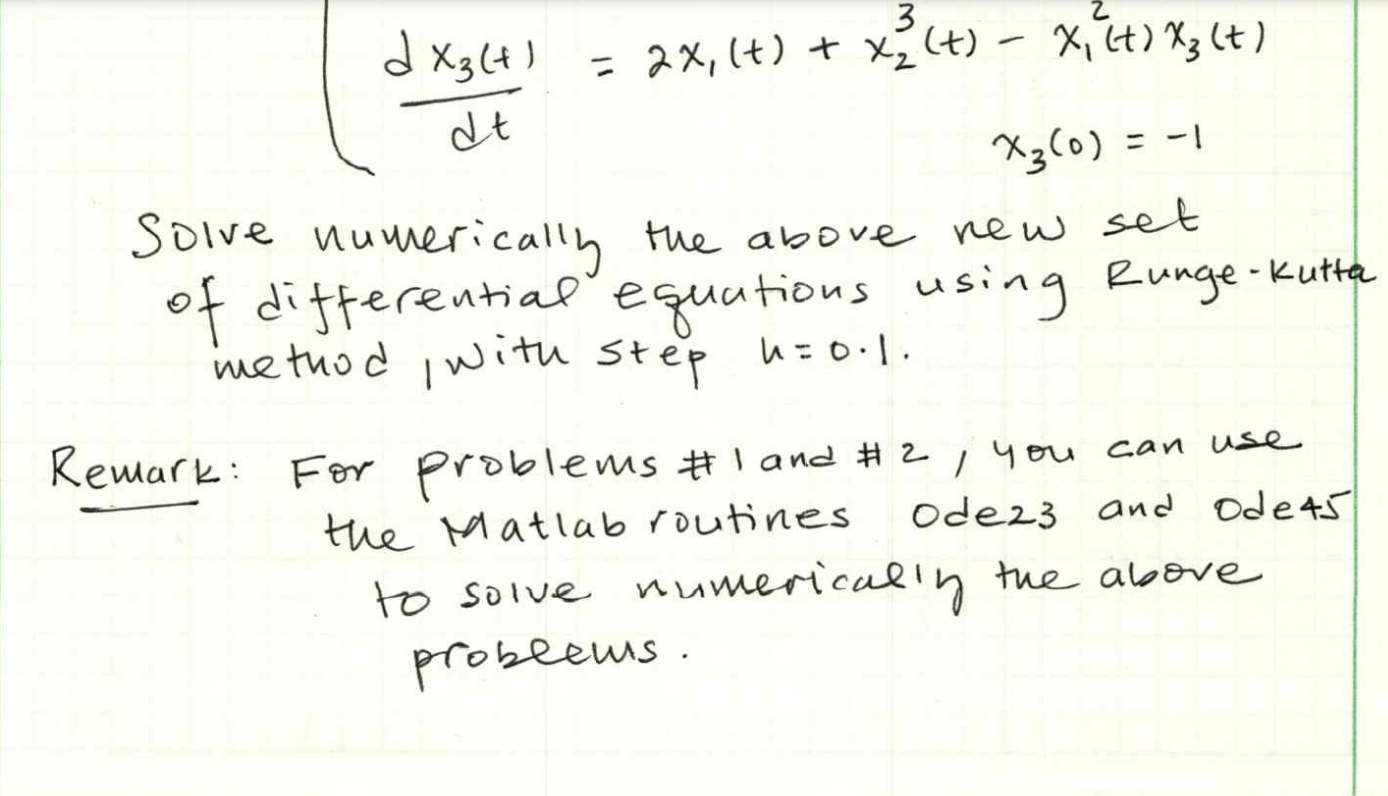 dx₃(t)/dt = 2x₁(t) + x₂³(t) - x₁²(t)x₃(t)
x₃(0) = -1
Solve numerically the above new set
of differential equations using Runge-Kutta
method, with step h=0.1.
Remark: For problems #1 and #2, you can use
the Matlab routines ode23 and ode45
to solve numerically the above
problems.